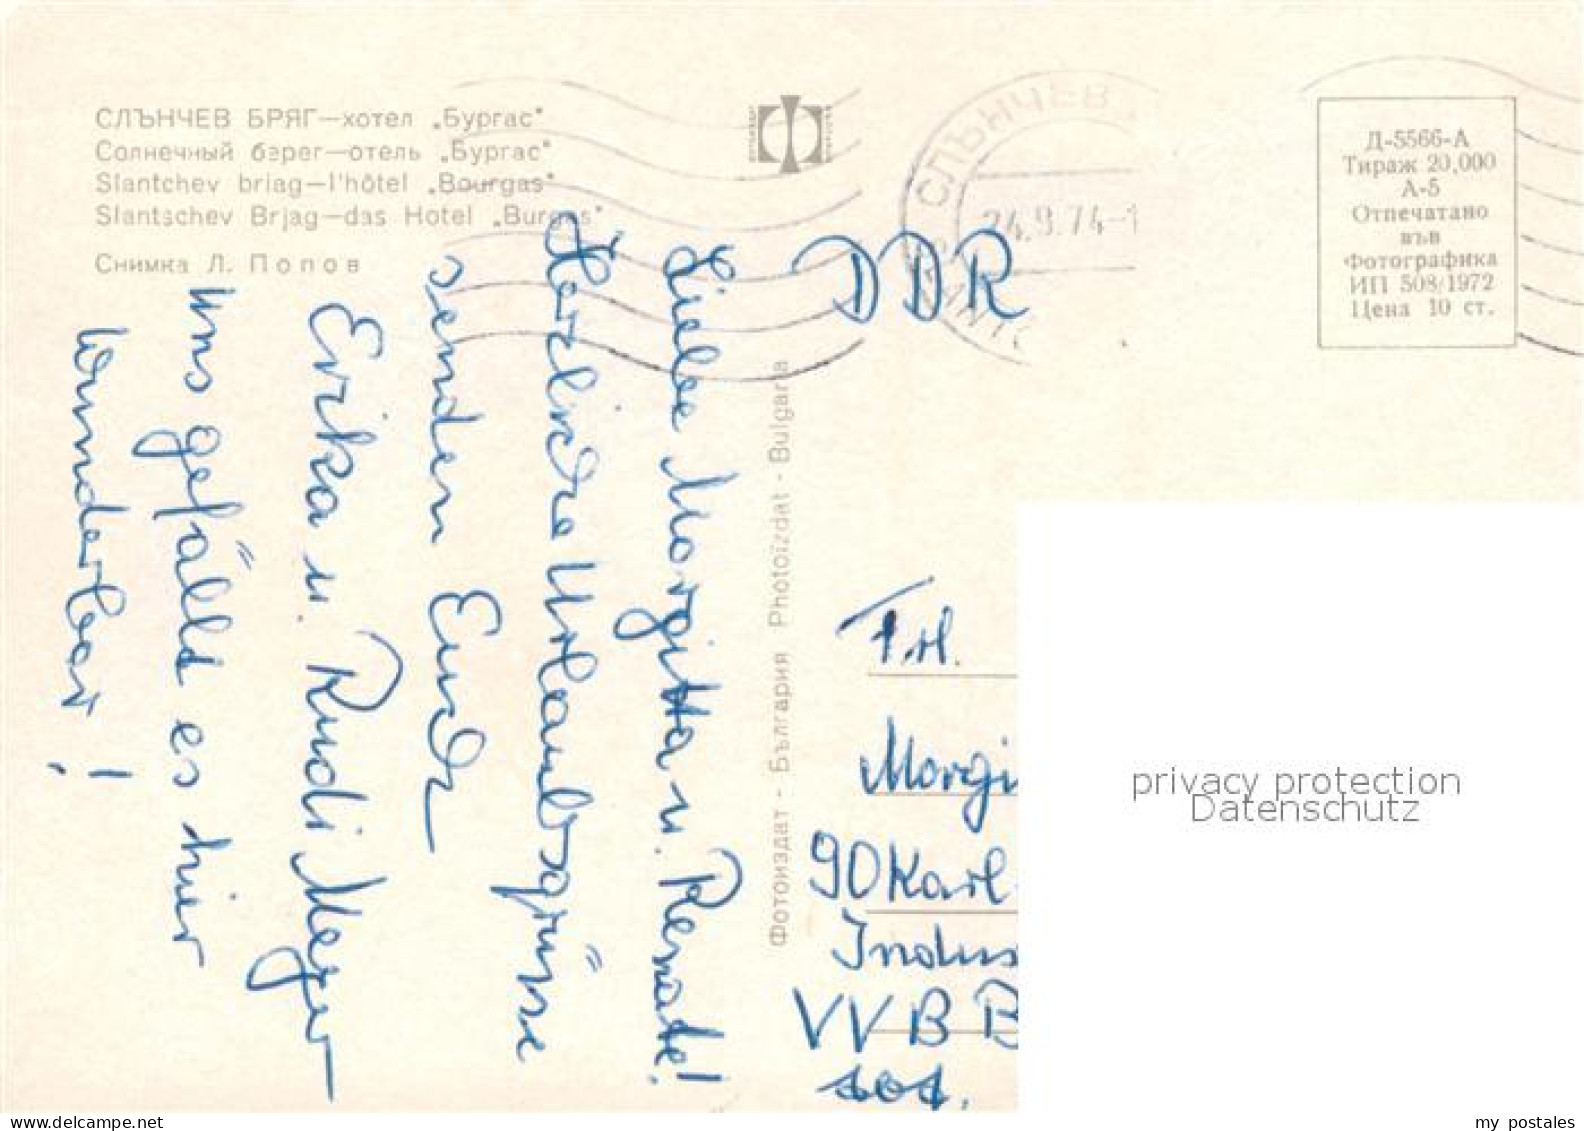 СЛЪНЧЕВ БРЯГ—хотел „Бургас"
Солнечный берег—отель „Бургас"
Slantchev briag—l'hôtel „Bourgas"
Slantschev Brjag—das Hotel „Burgas"
Снимка Л. Попов
СЛЪНЧЕВ
24.9.74-1
Д-5566-А
Тираж 20,000
А-5
Отпечатано
във
Фотографика
ИП 508/1972
Цена 10 ст.
Фотоиздат - България Photoizdat - Bulgaria
Liebe Morgitta u. Renate!
Herzliche Urlaubsgrüsse
senden Euch
Erika u. Rudi Meyer
Uns gefällt es hier
wunderbar!
DDR
Morgi
90 Karl-
Indus
VVB B
privacy protection
Datenschutz
https://www.delcampe.net
my postales